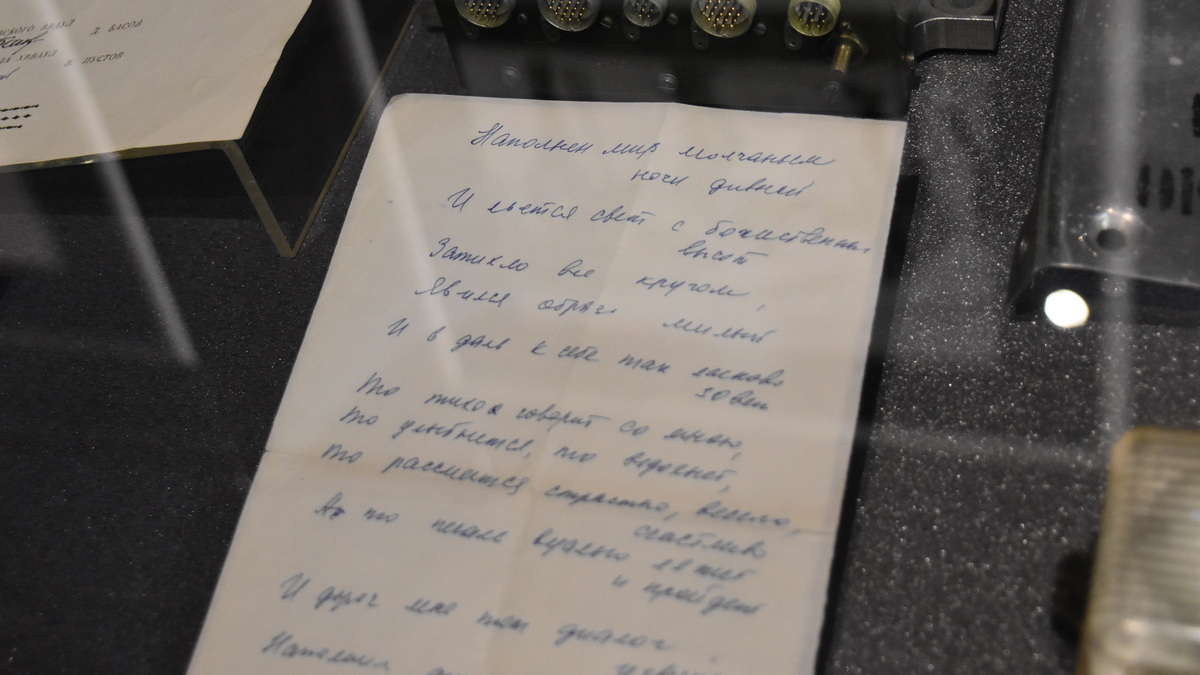 СКОГО АВВАУЛ Д БАСОВ
В. ПУСТОВ
Наполнен мир молчаньем
ночи дивной
И льется свет с божественных
высот
Затихло все кругом,
явился образ милый
И в даль к себе так ласково
зовет
То тихо говорит со мною,
То улыбнется, то вздохнет,
То рассмеется страстно, весело,
счастливо
А то печаль
и пройдет
И дорог мне тот диалог
Наполнил